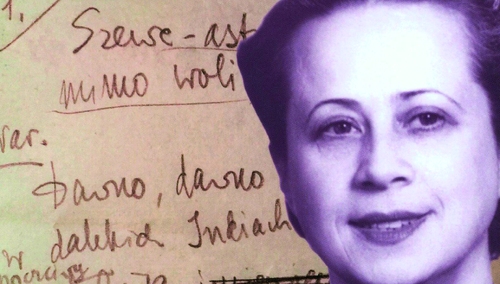 1.
Szewc-ast
mimo woli
war.
Dawno, dawno
w dalekich Indiach